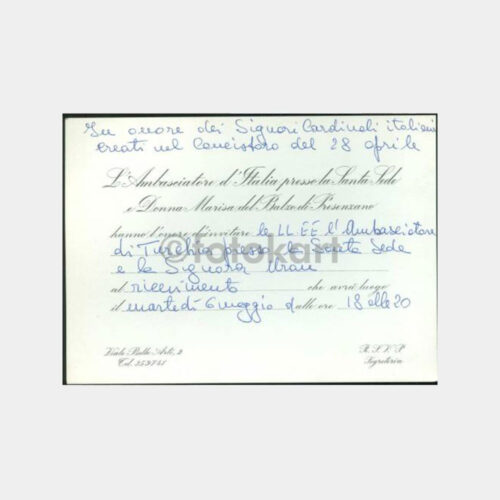 In onore dei Signori Cardinali italiani
creati nel Concistoro del 28 aprile
L'Ambasciatore d'Italia presso la Santa Sede
e Donna Marisa del Balzo di Presenzano
hanno l'onore d'invitare le LL. EE. l'Ambasciatore
di Turchia presso la Santa Sede
e la Signora Uran
al ricevimento che avrà luogo
il martedì 6 maggio dalle ore 18 alle 20
Viale Belle Arti, 2
Tel. 359741
R. S. V. P.
Segreteria
© fotokart